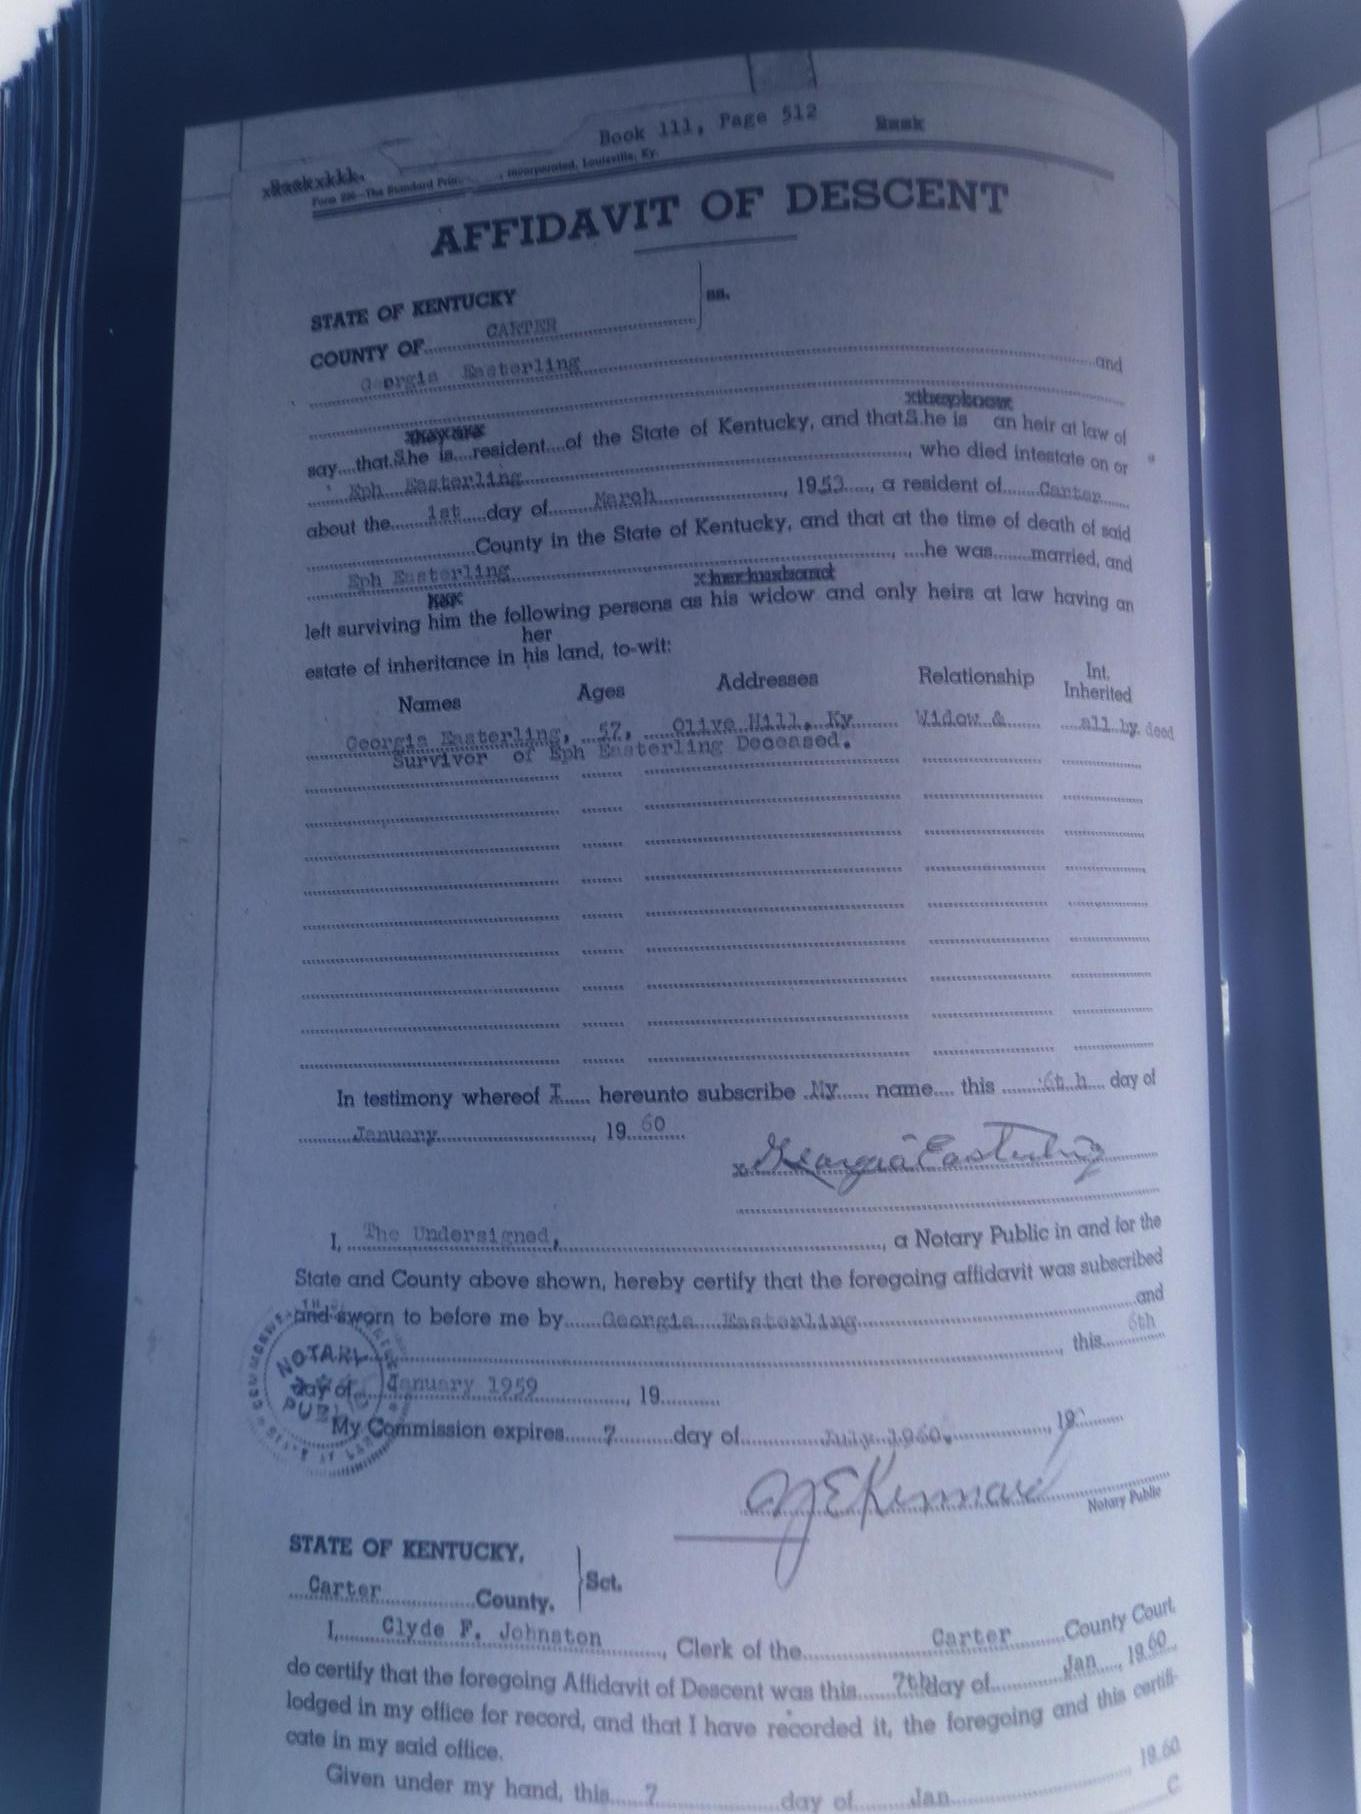 Book 111, Page 512
Form 226—The Standard Prin , Incorporated, Louisville, Ky.
AFFIDAVIT OF DESCENT
STATE OF KENTUCKY
COUNTY OF CARTER ss.
Georgia Easterling and
they are they know
say that S he is resident of the State of Kentucky, and that S he is an heir at law of
Eph Easterling , who died intestate on or
about the 1st day of March , 1953 , a resident of Carter
County in the State of Kentucky, and that at the time of death of said
Eph Easterling , he was married, and
her x her husband
left surviving him the following persons as his widow and only heirs at law having an
her
estate of inheritance in his land, to-wit:
Names Ages Addresses Relationship Int. Inherited
Georgia Easterling, 57, Olive Hill, Ky Widow & all by deed
Survivor of Eph Easterling Deceased.
In testimony whereof I hereunto subscribe My name this 6th day of
January , 19 60
x Georgia Easterling
I, The Undersigned, , a Notary Public in and for the
State and County above shown, hereby certify that the foregoing affidavit was subscribed
and sworn to before me by Georgia Easterling and
, this 6th
NOTARY
day of January 1959 , 19
PUBLIC
My Commission expires 7 day of July 1960. , 19
Notary Public
STATE OF KENTUCKY,
Carter County. Sct.
I, Clyde F. Johnston , Clerk of the Carter County Court,
do certify that the foregoing Affidavit of Descent was this 7th day of Jan , 19 60
lodged in my office for record, and that I have recorded it, the foregoing and this certifi-
cate in my said office.
Given under my hand, this 7 day of Jan 19 60
C